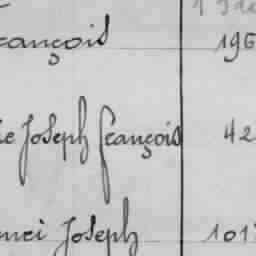 ançois 196
Joseph françois 42
Joseph 101